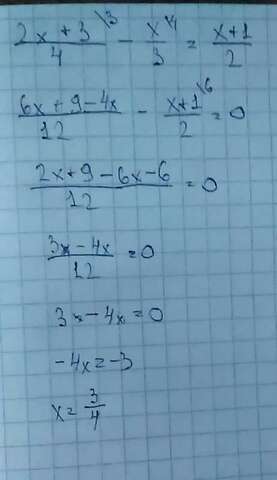 (2x + 3)/4 \3 - x/3 \4 = (x+1)/2
(6x + 9 - 4x)/12 - (x+1)/2 \6 = 0
(2x + 9 - 6x - 6)/12 = 0
(3x - 4x)/12 = 0
3x - 4x = 0
-4x = -3
x = 3/4